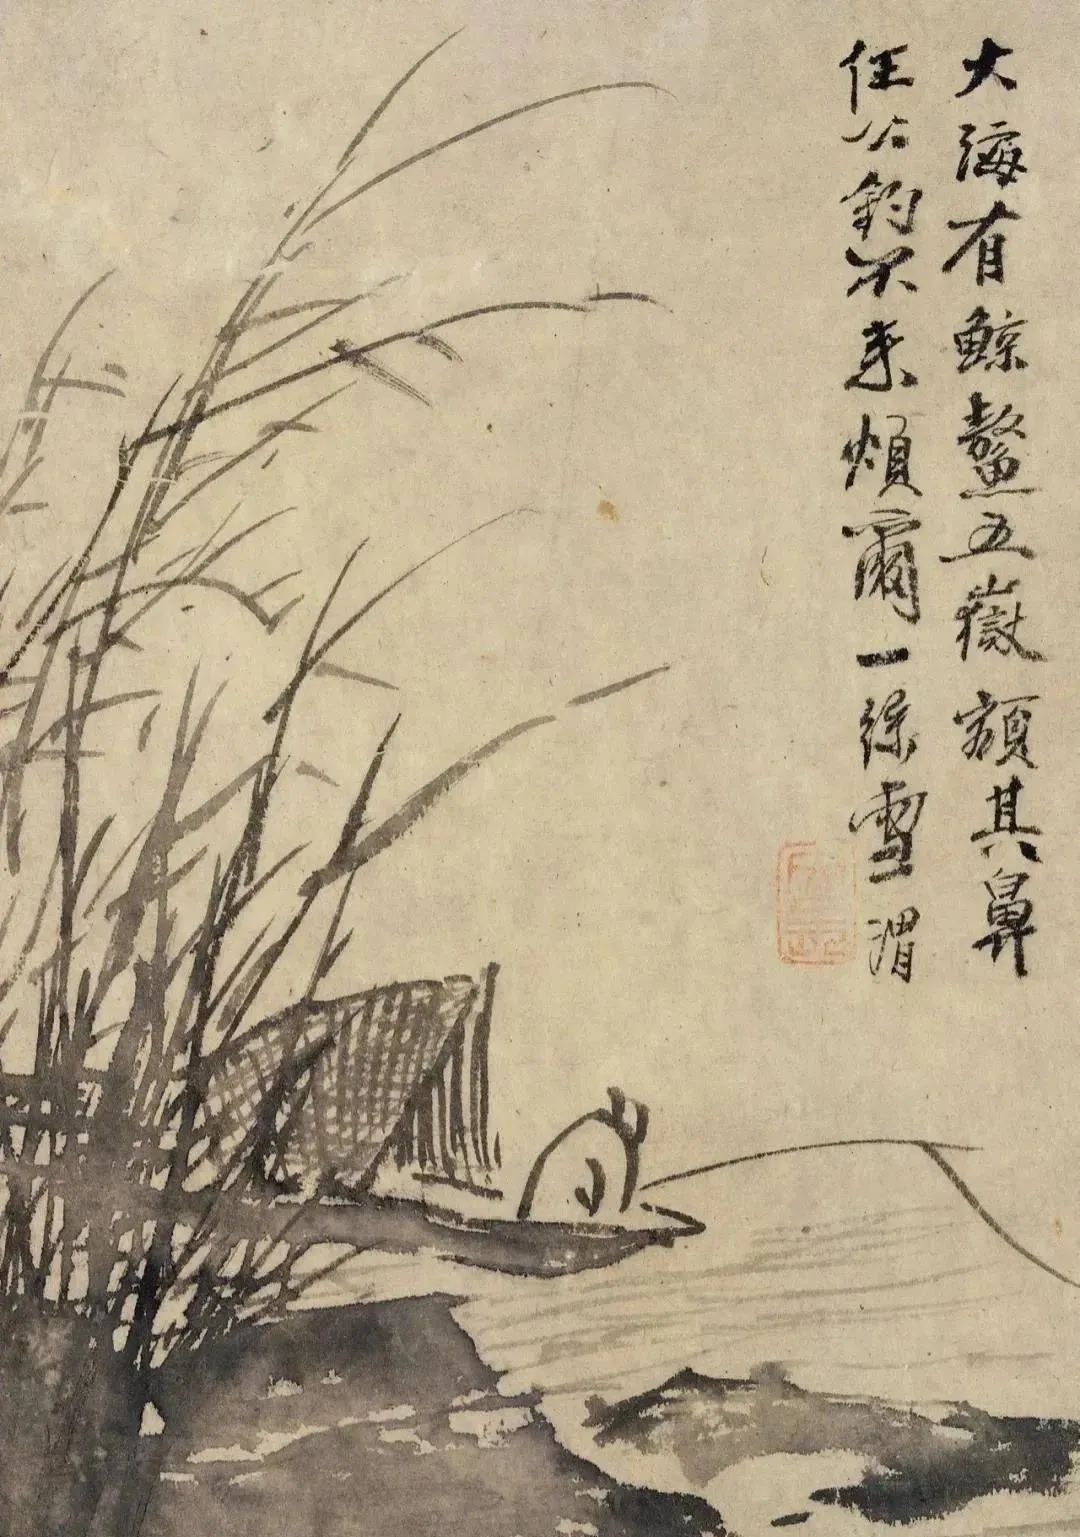 大海有鯨鰲五嶽額其鼻
任公釣不來煩爾一絲雪渭